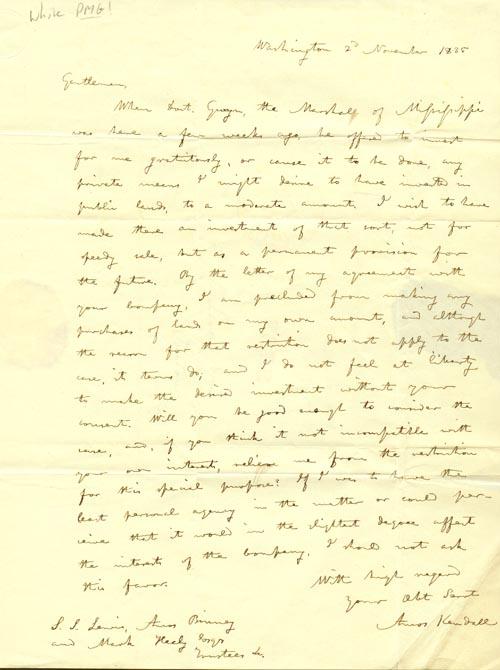 While PMG!
Washington 2d November 1835
Gentlemen,
When Saml. Gwyn, the Marshall of Mississippi
was here a few weeks ago, he offered to invest
for me gratitously, or cause it to be done, any
private means I might desire to have invested in
public lands, to a moderate amount. I wish to have
made there an investment of that sort, not for
speedy sale, but as a permanent provision for
the future. By the letter of my agreement with
your Company, I am precluded from making any
purchases of land on my own account, and although
the reason for that restriction does not apply to the
case, its terms do, and I do not feel at liberty
to make the desired investment without your
consent. Will you be good enough to consider the
case, and, if you think it not incompatible with
your own interests, relieve me from the restriction
for this special purpose? If I was to have the
least personal agency in the matter or could per-
ceive that it would in the slightest degree affect
the interests of the Company, I should not ask
this favor.
With high regard
Your Obt Servt
Amos Kendall
S. S. Lewis, Amos Binney
and Mark Healy Esqrs
Trustees &c.